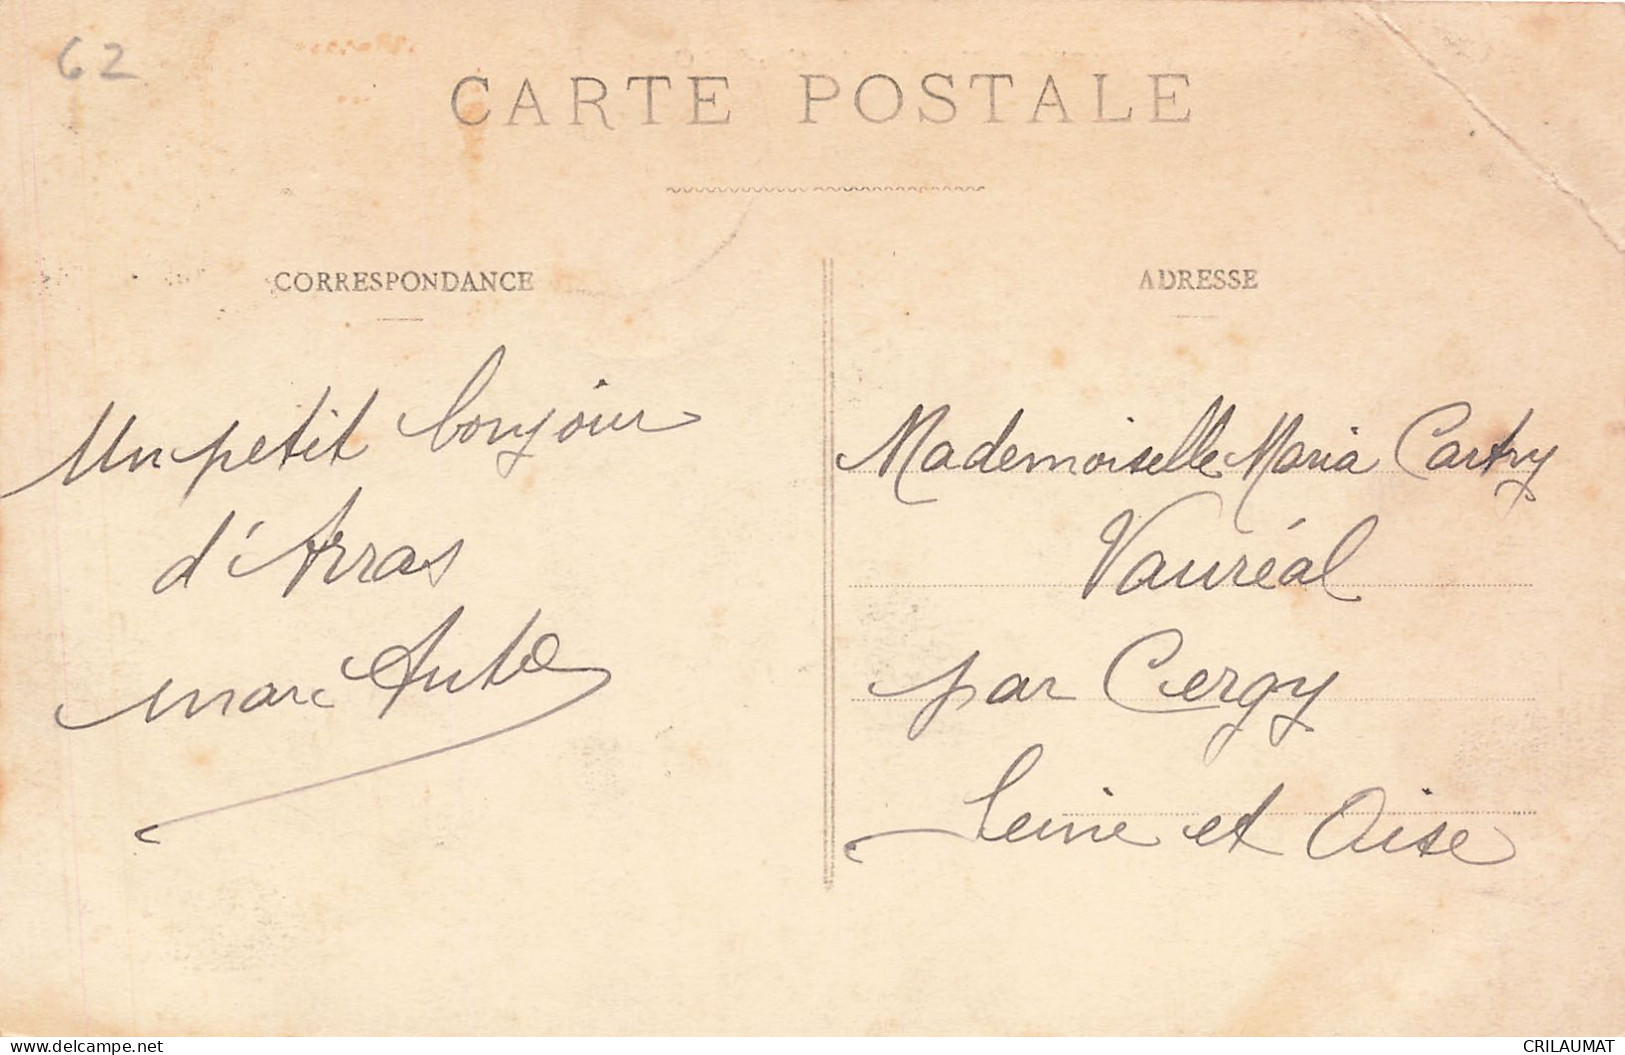 62
CARTE POSTALE
CORRESPONDANCE
Un petit bonjour
d'Arras
Marc
ADRESSE
Mademoiselle Maria Cartry
Vauréal
par Cergy
Seine et Oise
www.delcampe.net
CRILAUMAT